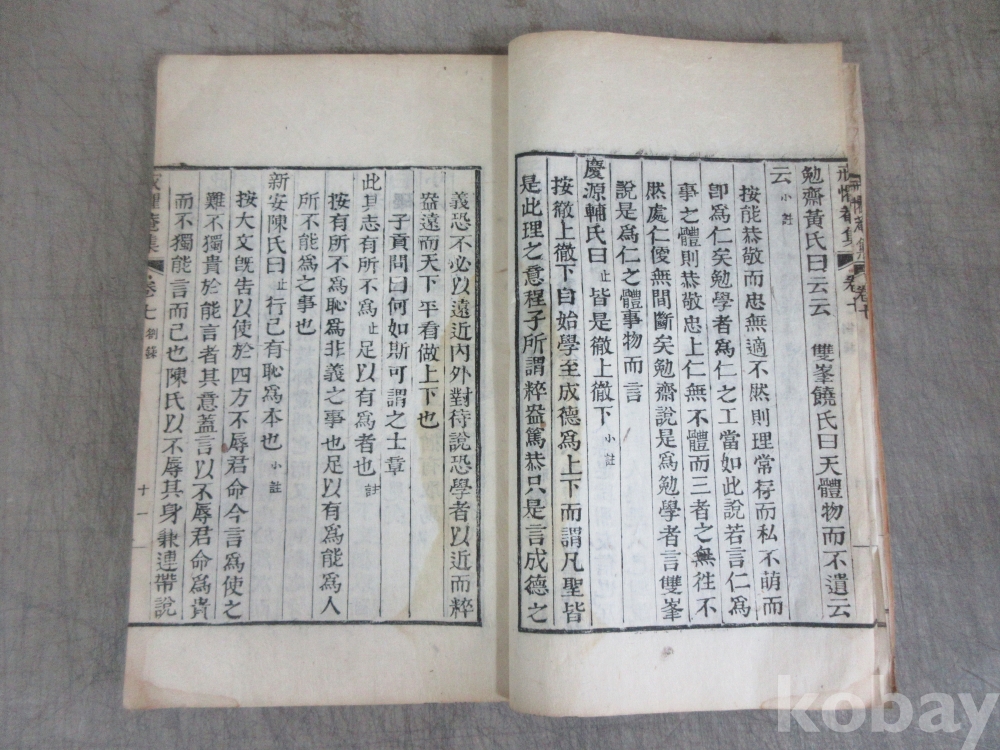 勉齋黃氏曰云云 雙峯饒氏曰天體物而不遺云
云 小註
按能恭敬而忠無適不然則理常存而私不萌而
卽爲仁矣勉學者爲仁之工當如此說若言仁爲
事之體則恭敬忠上仁無不體而三者之無往不
然處仁便無間斷矣勉齋說是爲勉學者言雙峯
說是爲仁之體事物而言
慶源輔氏曰止皆是徹上徹下 小註
按徹上徹下自始學至成德爲上下而謂凡聖皆
是此理之意程子所謂粹盎篤恭只是言成德之
義恐不必以遠近內外對待說恐學者以近而粹
盎遠而天下平看做上下也
子貢問曰何如斯可謂之士章
此其志有所不爲止足以有爲者也 註
按有所不爲恥爲非義之事也足以有爲能爲人
所不能爲之事也
新安陳氏曰止行己有恥爲本也 小註
按大文旣告以使於四方不辱君命今言爲使之
難不獨貴於能言者其意蓋言以不辱君命爲貴
而不獨能言而已也陳氏以不辱其身兼連帶說
卷七 劄錄
十一
kobay